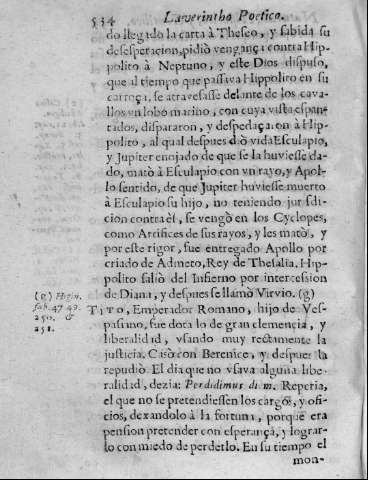 534 Laverintho Poetico.
do llegado la carta à Theseo, y sabida su
desesperacion, pidiò vengança contra Hip-
polito à Neptuno, y este Dios dispuso,
que al tiempo que passava Hippolito en su
carroça, se atravesasse delante de los cava-
llos vn lobo marino, con cuya vista espan-
tados, dispararon, y despedaçaron à Hip-
polito, al qual despues diò vida Esculapio,
y Jupiter enojado de que se la huviesse da-
do, matò à Esculapio con vn rayo, y Apol-
lo sentido, de que Jupiter huviesse muerto
à Esculapio su hijo, no teniendo jursdi-
cion contra èl, se vengò en los Cyclopes,
como Artifices de sus rayos, y les matò, y
por este rigor, fue entregado Apollo por
criado de Admeto, Rey de Thesalia. Hip-
polito saliò del Infierno por intercession
de Diana, y despues se llamò Virvio. (g)
(g) Higin.
fab. 47 49.
250. &
251.
TITO, Emperador Romano, hijo de Ves-
pasiano, fue dotado de gran clemencia, y
liberalidad, vsando muy rectamente la
justicia. Casò con Berenice, y despues la
repudiò. El dia que no vsava alguna libe-
ralidad, dezia: Perdidimus diem. Reperia,
el que no se pretendiessen los cargos, y ofi-
cios, dexandolo à la fortuna, porque era
pension pretender con esperança, y lograr-
lo con miedo de perderlo. En su tiempo el
mon-